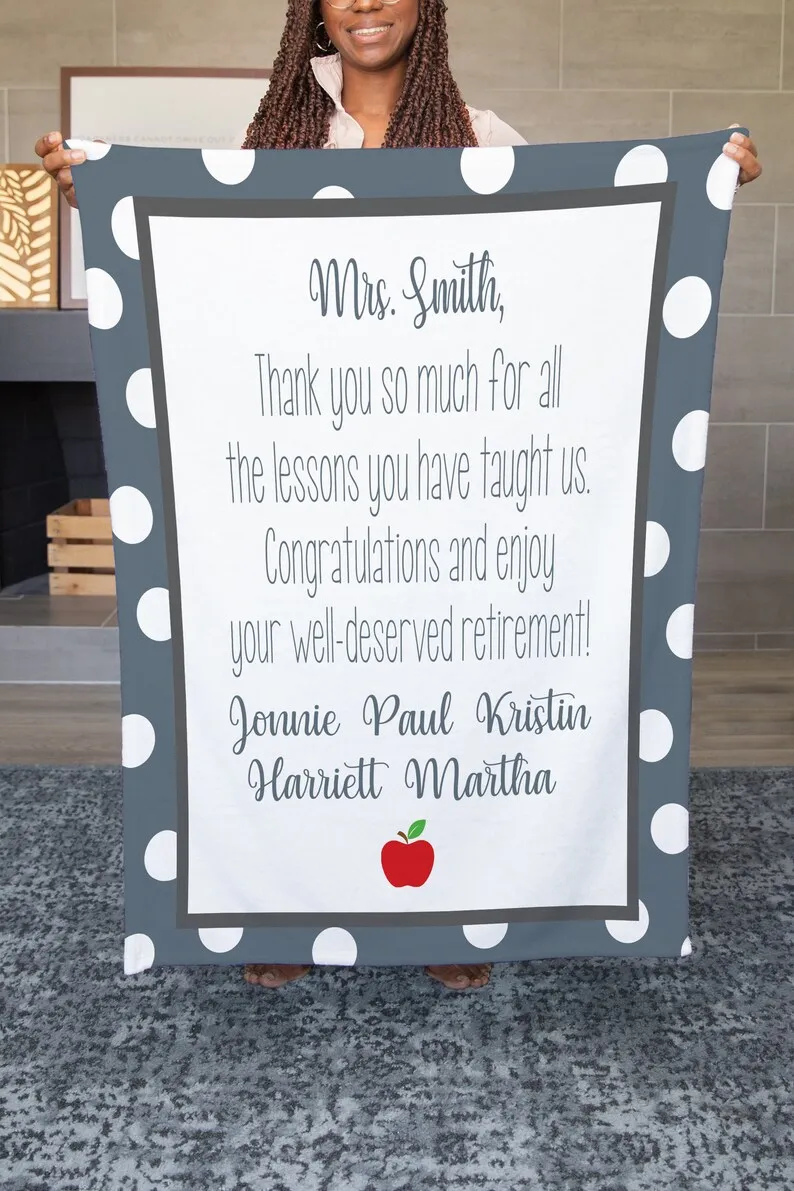 Mrs. Smith,
Thank you so much for all
the lessons you have taught us.
Congratulations and enjoy
your well-deserved retirement!
Jonnie Paul Kristin
Harriett Martha